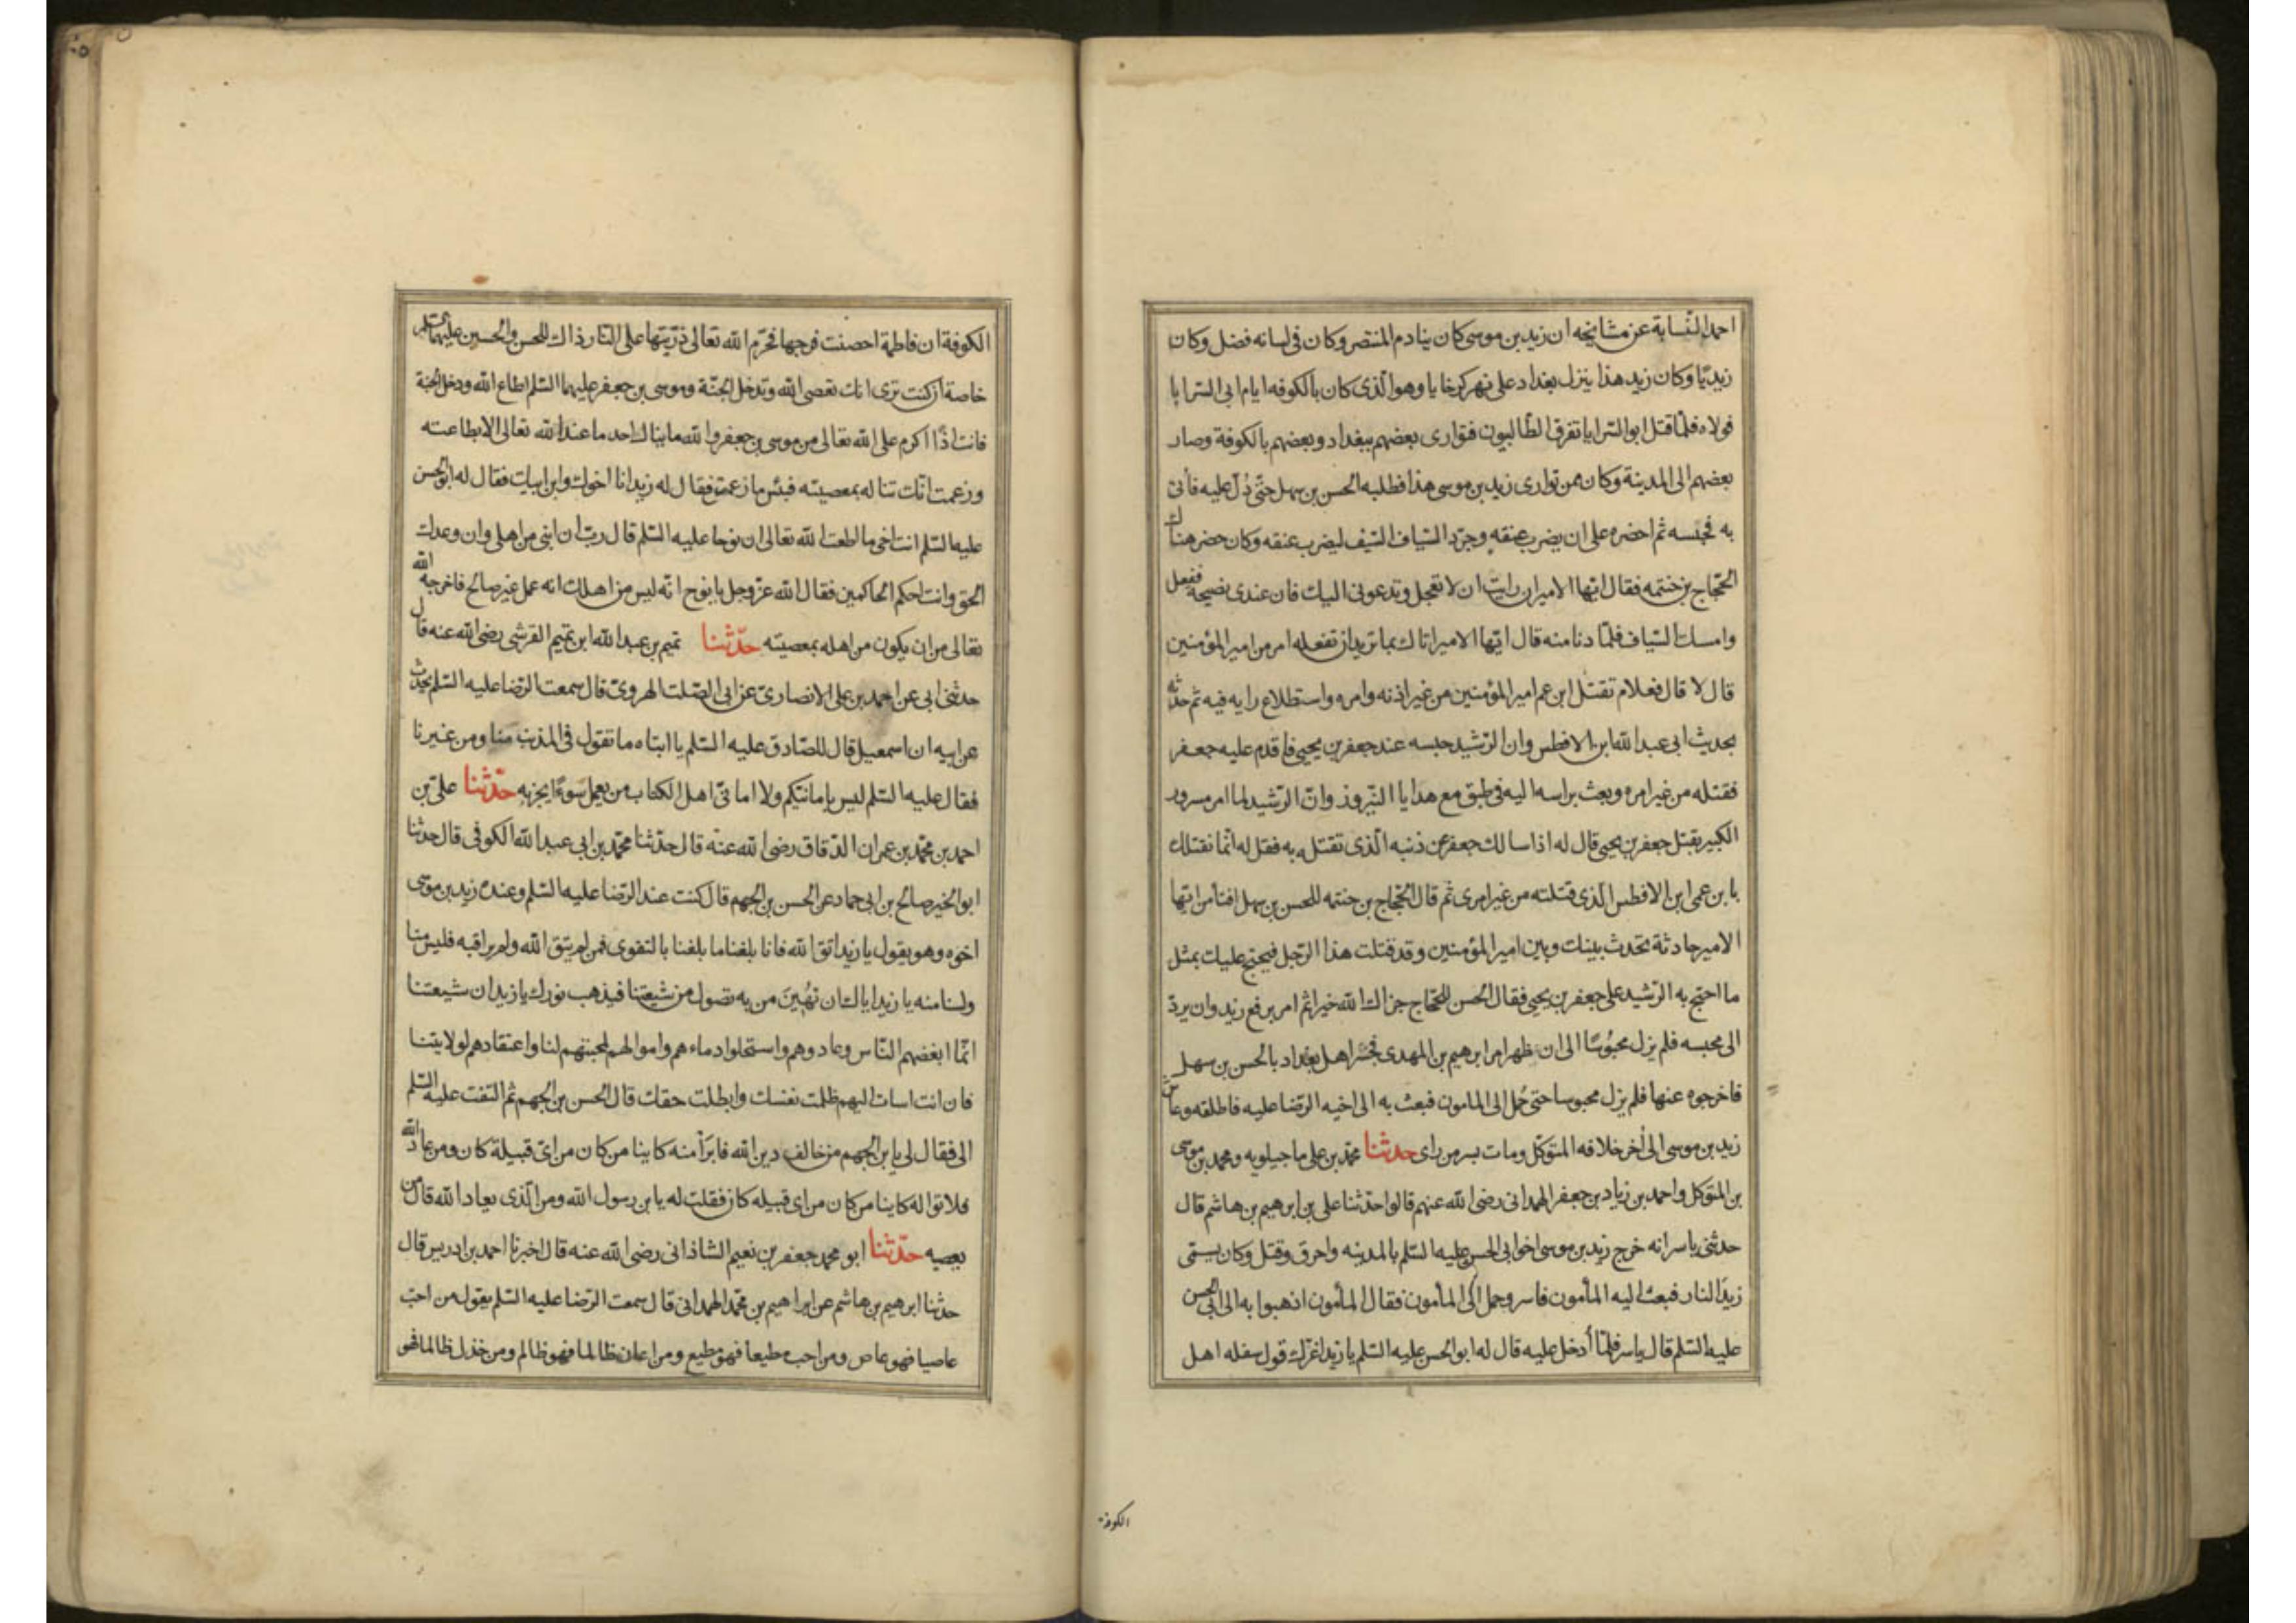 احمد النسابة عن مشايخه ان زيد بن موسى كان ينادم المنتصر وكان فى لسانه فضل وكان
زيديا وكان زيد هذا ينزل بغداد على نهر كرخايا وهو الذى كان بالكوفه ايام ابى السرايا
فولاه فلما قتل ابو السرايا تفرق الطالبيون فتوارى بعضهم ببغداد وبعضهم بالكوفة وصار
بعضهم الى المدينة وكان ممن توارى زيد بن موسى هذا فطلبه الحسن بن سهل حتى دل عليه فأتى
به فحبسه ثم احضره على ان يضرب عنقه وجرد السياف السيف ليضرب عنقه وكان حضر هناك
الحجاج بن خنتمه فقال ايها الامير ان رايت ان لا تعجل وتدعونى اليك فان عندى نصيحة ففعل
وامسك السياف فلما دنا منه قال ايها الامير اتاك بما تريد ان تفعله امر من امير المؤمنين
قال لا قال فعلام تقتل ابن عم امير المؤمنين من غير اذنه وامره واستطلاع رايه فيه ثم حدثه
بحديث ابى عبد الله ابن الافطس وان الرشيد حبسه عند جعفر بن يحيى فاقدم عليه جعفر
فقتله من غير امره وبعث براسه اليه فى طبق مع هدايا النيروز وان الرشيد لما امر مسرور
الكبير بقتل جعفر بن يحيى قال له اذا سالك جعفر عن ذنبه الذى تقتله به فقل له انما نقتلك
بابن عمى ابن الافطس الذى قتلته من غير امرى ثم قال الحجاج بن خنتمه للحسن بن سهل افتأمن ايها
الامير حادثة تحدث بينك وبين امير المؤمنين وقد قتلت هذا الرجل فيحتج عليك بمثل
ما احتج به الرشيد على جعفر بن يحيى فقال الحسن للحجاج جزاك الله خيرا ثم امر برفع زيد وان يرد
الى محبسه فلم يزل محبوسا الى ان ظهر امر ابرهيم بن المهدى فجسر اهل بغداد بالحسن بن سهل
فاخرجوه عنها فلم يزل محبوسا حتى حمل الى المامون فبعث به الى اخيه الرضا عليه فاطلقه وعاش
زيد بن موسى الى اخر خلافه المتوكل ومات بسر من راى حدثنا محمد بن على ماجيلويه ومحمد بن موسى
بن المتوكل واحمد بن زياد بن جعفر الهمدانى رضى الله عنهم قالوا حدثنا على بن ابرهيم بن هاشم قال
حدثنى ياسر انه خرج زيد بن موسى اخو ابى الحسن عليه السلم بالمدينه واحرق وقتل وكان يسمى
زيد النار فبعث اليه المأمون فاسر وحمل الى المأمون فقال المأمون اذهبوا به الى ابى الحسن
عليه السلم قال ياسر فلما أدخل عليه قال له ابو الحسن عليه السلم يا زيد اغرك قول سفله اهل
الكوفة
الكوفة ان فاطمة احصنت فرجها فحرم الله تعالى ذريتها على النار ذاك للحسن والحسين عليهما السلم
خاصة ان كنت ترى انك تعصى الله وتدخل الجنة وموسى بن جعفر عليهما السلم اطاع الله ودخل الجنة
فانت اذا اكرم على الله تعالى من موسى بن جعفر والله ما ينال احد ما عند الله تعالى الا بطاعته
وزعمت انك تناله بمعصيته فبئس ما زعمت فقال له زيد انا اخوك وابن ابيك فقال له ابو الحسن
عليه السلم انت اخى ما اطعت الله تعالى ان نوحا عليه السلم قال رب ان ابنى من اهلى وان وعدك
الحق وانت احكم الحاكمين فقال الله عز وجل يا نوح انه ليس من اهلك انه عمل غير صالح فاخرجه الله
تعالى من ان يكون من اهله بمعصيته حدثنا تميم بن عبد الله ابن تميم القرشى رضى الله عنه قال
حدثنى ابى عن احمد بن على الانصارى عن ابى الصلت الهروى قال سمعت الرضا عليه السلم يحدث
عن ابيه ان اسمعيل قال للصادق عليه السلم يا ابتاه ما تقول فى المذنب منا ومن غيرنا
فقال عليه السلم ليس بامانيكم ولا امانى اهل الكتاب من يعمل سوءا يجز به حدثنا على بن
احمد بن محمد بن عمران الدقاق رضى الله عنه قال حدثنا محمد بن ابى عبد الله الكوفى قال حدثنا
ابو الخير صالح بن ابى حماد عن الحسن بن الجهم قال كنت عند الرضا عليه السلم وعنده زيد بن موسى
اخوه وهو يقول يا زيد اتق الله فانا بلغنا ما بلغنا بالتقوى فمن لم يتق الله ولم يراقبه فليس منا
ولسنا منه يا زيد اياك ان تهين من به تصول من شيعتنا فيذهب نورك يا زيد ان شيعتنا
انما ابغضهم الناس وعادوهم واستحلوا دماءهم واموالهم لمحبتهم لنا واعتقادهم لولايتنا
فان انت اسات اليهم ظلمت نفسك وابطلت حقك قال الحسن بن الجهم ثم التفت عليه السلم
الى فقال لى يا بن الجهم من خالف دين الله فابرأ منه كاينا من كان من اى قبيلة كان ومن عاد الله
فلا تواله كاينا من كان من اى قبيله كان فقلت له يا بن رسول الله ومن الذى يعاد الله قال من
يعصيه حدثنا ابو محمد جعفر بن نعيم الشاذانى رضى الله عنه قال اخبرنا احمد بن ادريس قال
حدثنا ابرهيم بن هاشم عن ابراهيم بن محمد الهمدانى قال سمعت الرضا عليه السلم يقول من احب
عاصيا فهو عاص ومن احب مطيعا فهو مطيع ومن اعان ظالما فهو ظالم ومن خذل ظالما فهو